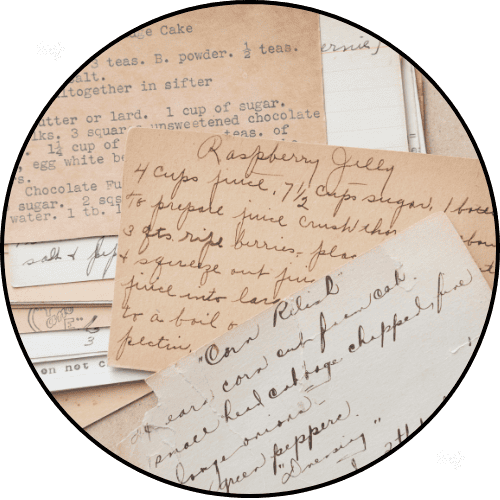 ge Cake
3 teas. B. powder. ½ teas.
salt.
altogether in sifter
utter or lard. 1 cup of sugar.
lks. 3 squar unsweetened chocolate
1¼ cup of teas. of
, egg white be
s.
Chocolate Fu
sugar. 2 sqs
water. 1 tb. 1
ernie)
Raspberry Jelly
4 cups juice, 7½ cups sugar, 1 box
To prepare juice crush tho
3 qts ripe berries, plac
& squeeze out jui
juice into lar
to a boil o
pectin,
salt & pep
on not c
"Corn Relish"
ears corn cut from cob.
small head cabbage chopped fine
large onions
green peppers.
"Dressing"